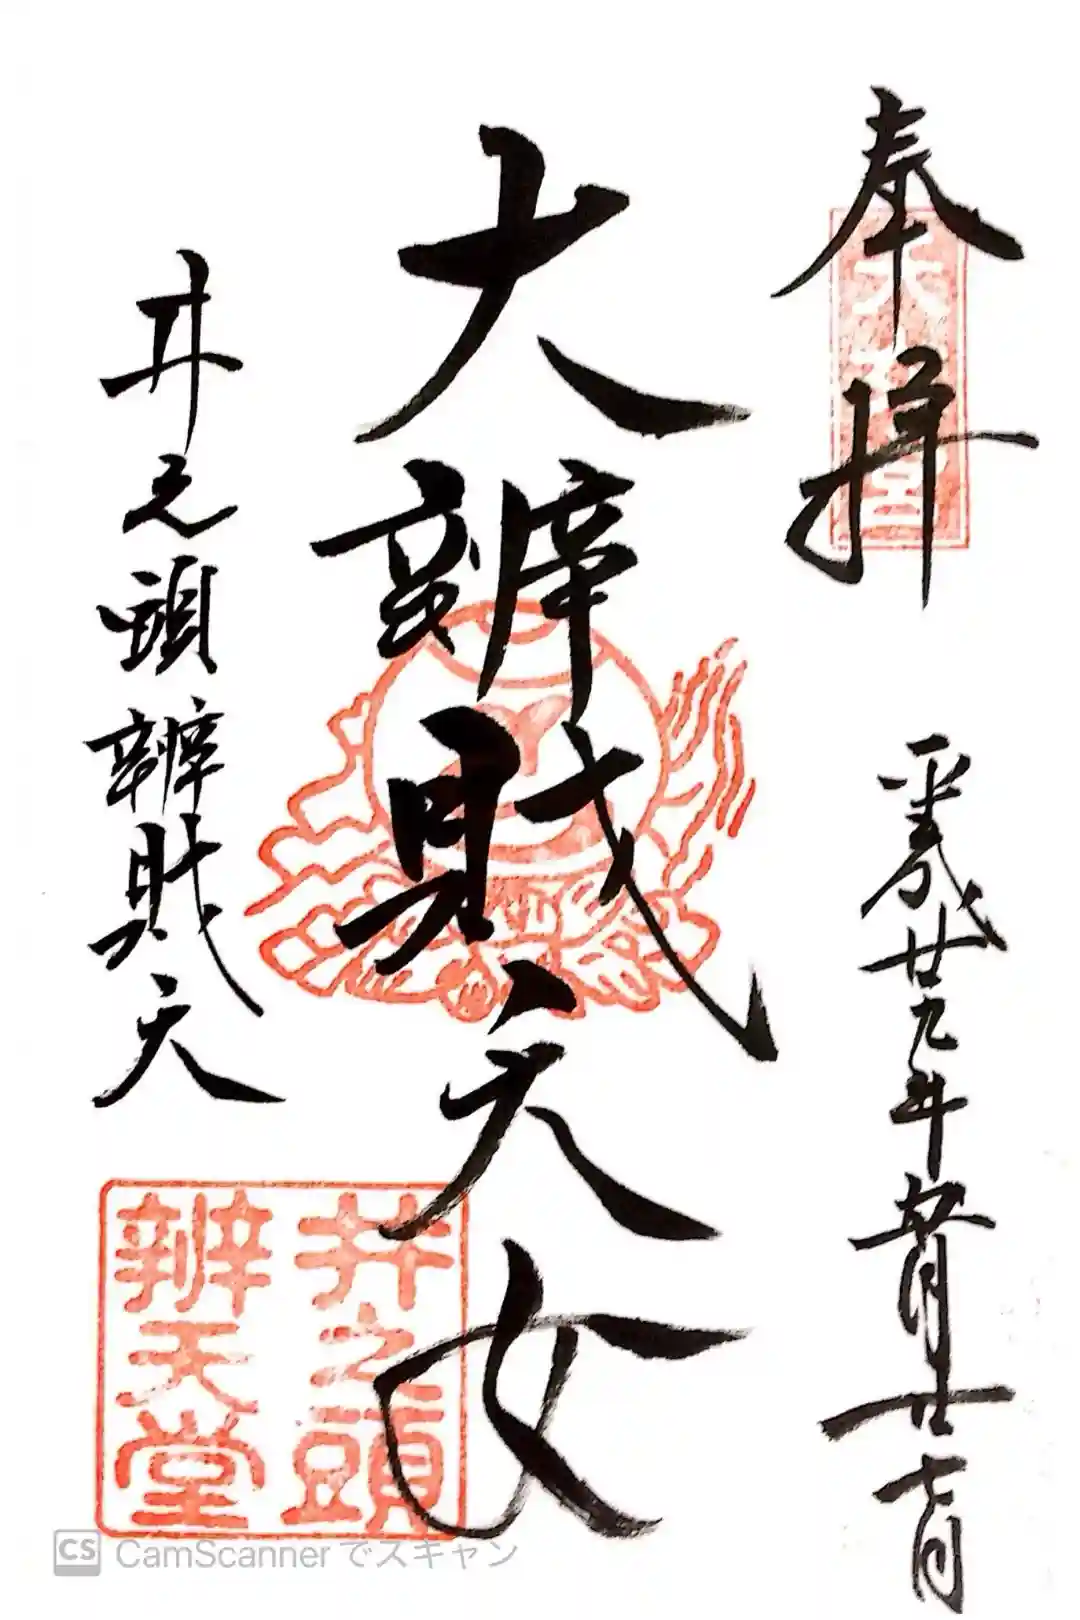 奉拝
平成廿九年
大辨財天女
井之頭辨財天
井之頭
辨天堂
CS CamScanner でスキャン